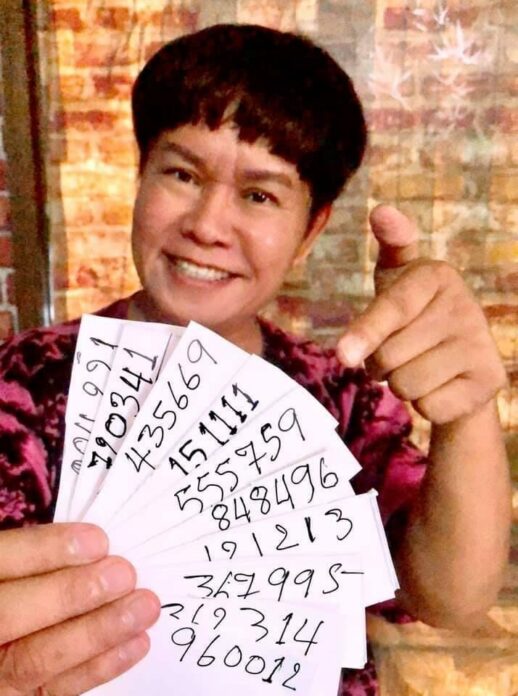 790341
435669
151111
555759
848496
191213
319314
960012